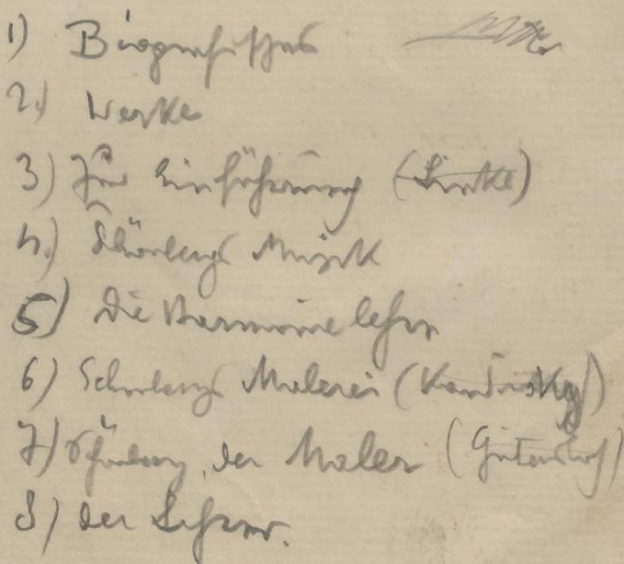 1) Biografisches
2.) Werke
3) Zur Einführung (Linke)
4.) Schönbergs Musik
5) Die Harmonielehre
6) Schönbergs Malerei (Kandinsky)
7) Schönberg, der Maler (Gütersloh)
8) Der Lehrer.